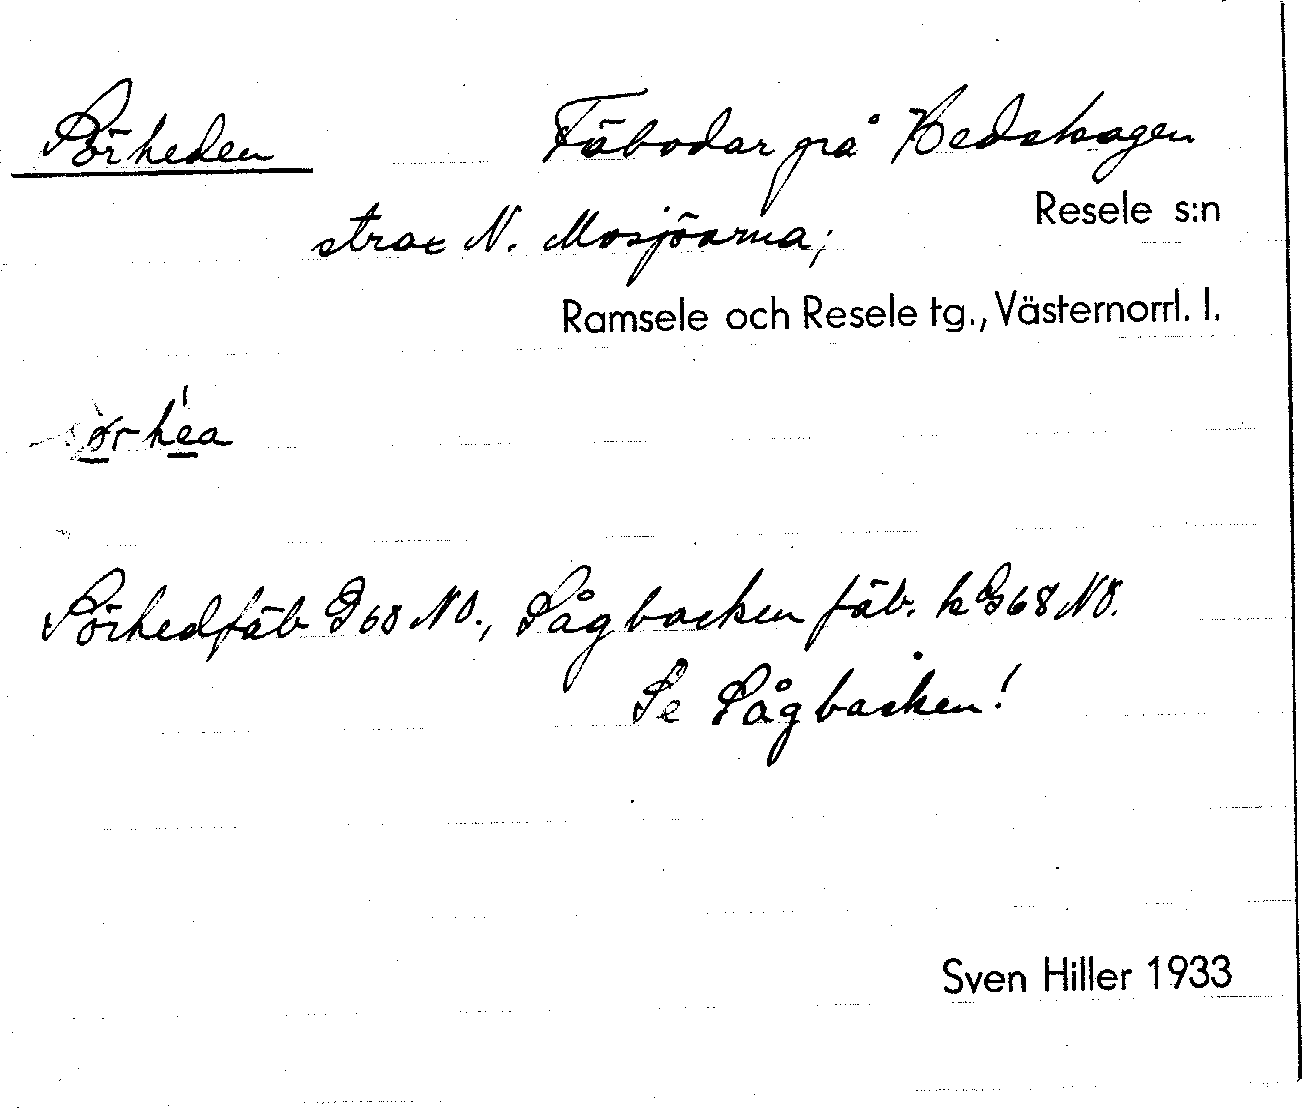 Sörheden Fäbodar på Hedskogen
Resele s:n
strax N. Mosjöarna;
Ramsele och Resele tg., Västernorrl. l.
Sörhedfäb G 68 NO., Sågbacken fäb. k G 68 NO.
Se Sågbacken!
Sven Hiller 1933